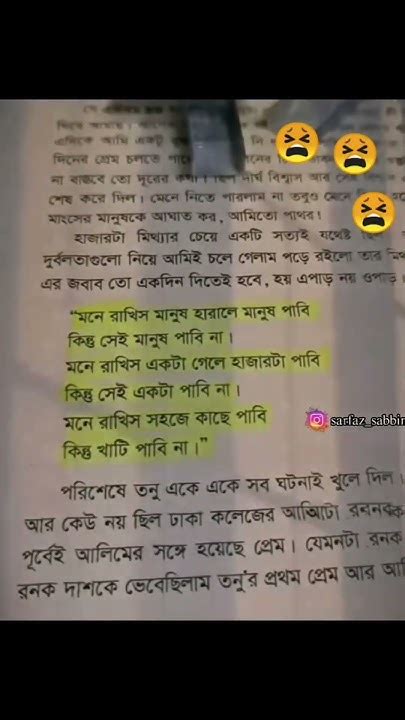 এদিকে আমি একটু
দিনের প্রেম চলতে পারে
না বাস্তবে তো দূরের কথা। দীর্ঘ বিশ্বাস আর
শেষ করে দিল। মেনে নিতে পারলাম না তবুও মেনে
মাংসের মানুষকে আঘাত কর, আমিতো পাথর!
হাজারটা মিথ্যার চেয়ে একটি সত্যই যথেষ্ট ছিল
দুর্বলতাগুলো নিয়ে আমিই চলে গেলাম পড়ে রইলো তার
এর জবাব তো একদিন দিতেই হবে, হয় এপাড় নয় ওপাড়।
“মনে রাখিস মানুষ হারালে মানুষ পাবি
কিন্তু সেই মানুষ পাবি না।
মনে রাখিস একটা গেলে হাজারটা পাবি
কিন্তু সেই একটা পাবি না।
মনে রাখিস সহজে কাছে পাবি
sarfaz_sabbir
কিন্তু খাটি পাবি না।”
পরিশেষে তনু একে একে সব ঘটনাই খুলে দিল।
আর কেউ নয় ছিল ঢাকা কলেজের
পূর্বেই আলিমের সঙ্গে হয়েছে প্রেম। যেমনটা রনক
রনক দাশকে ভেবেছিলাম তনু'র প্রথম প্রেম আর